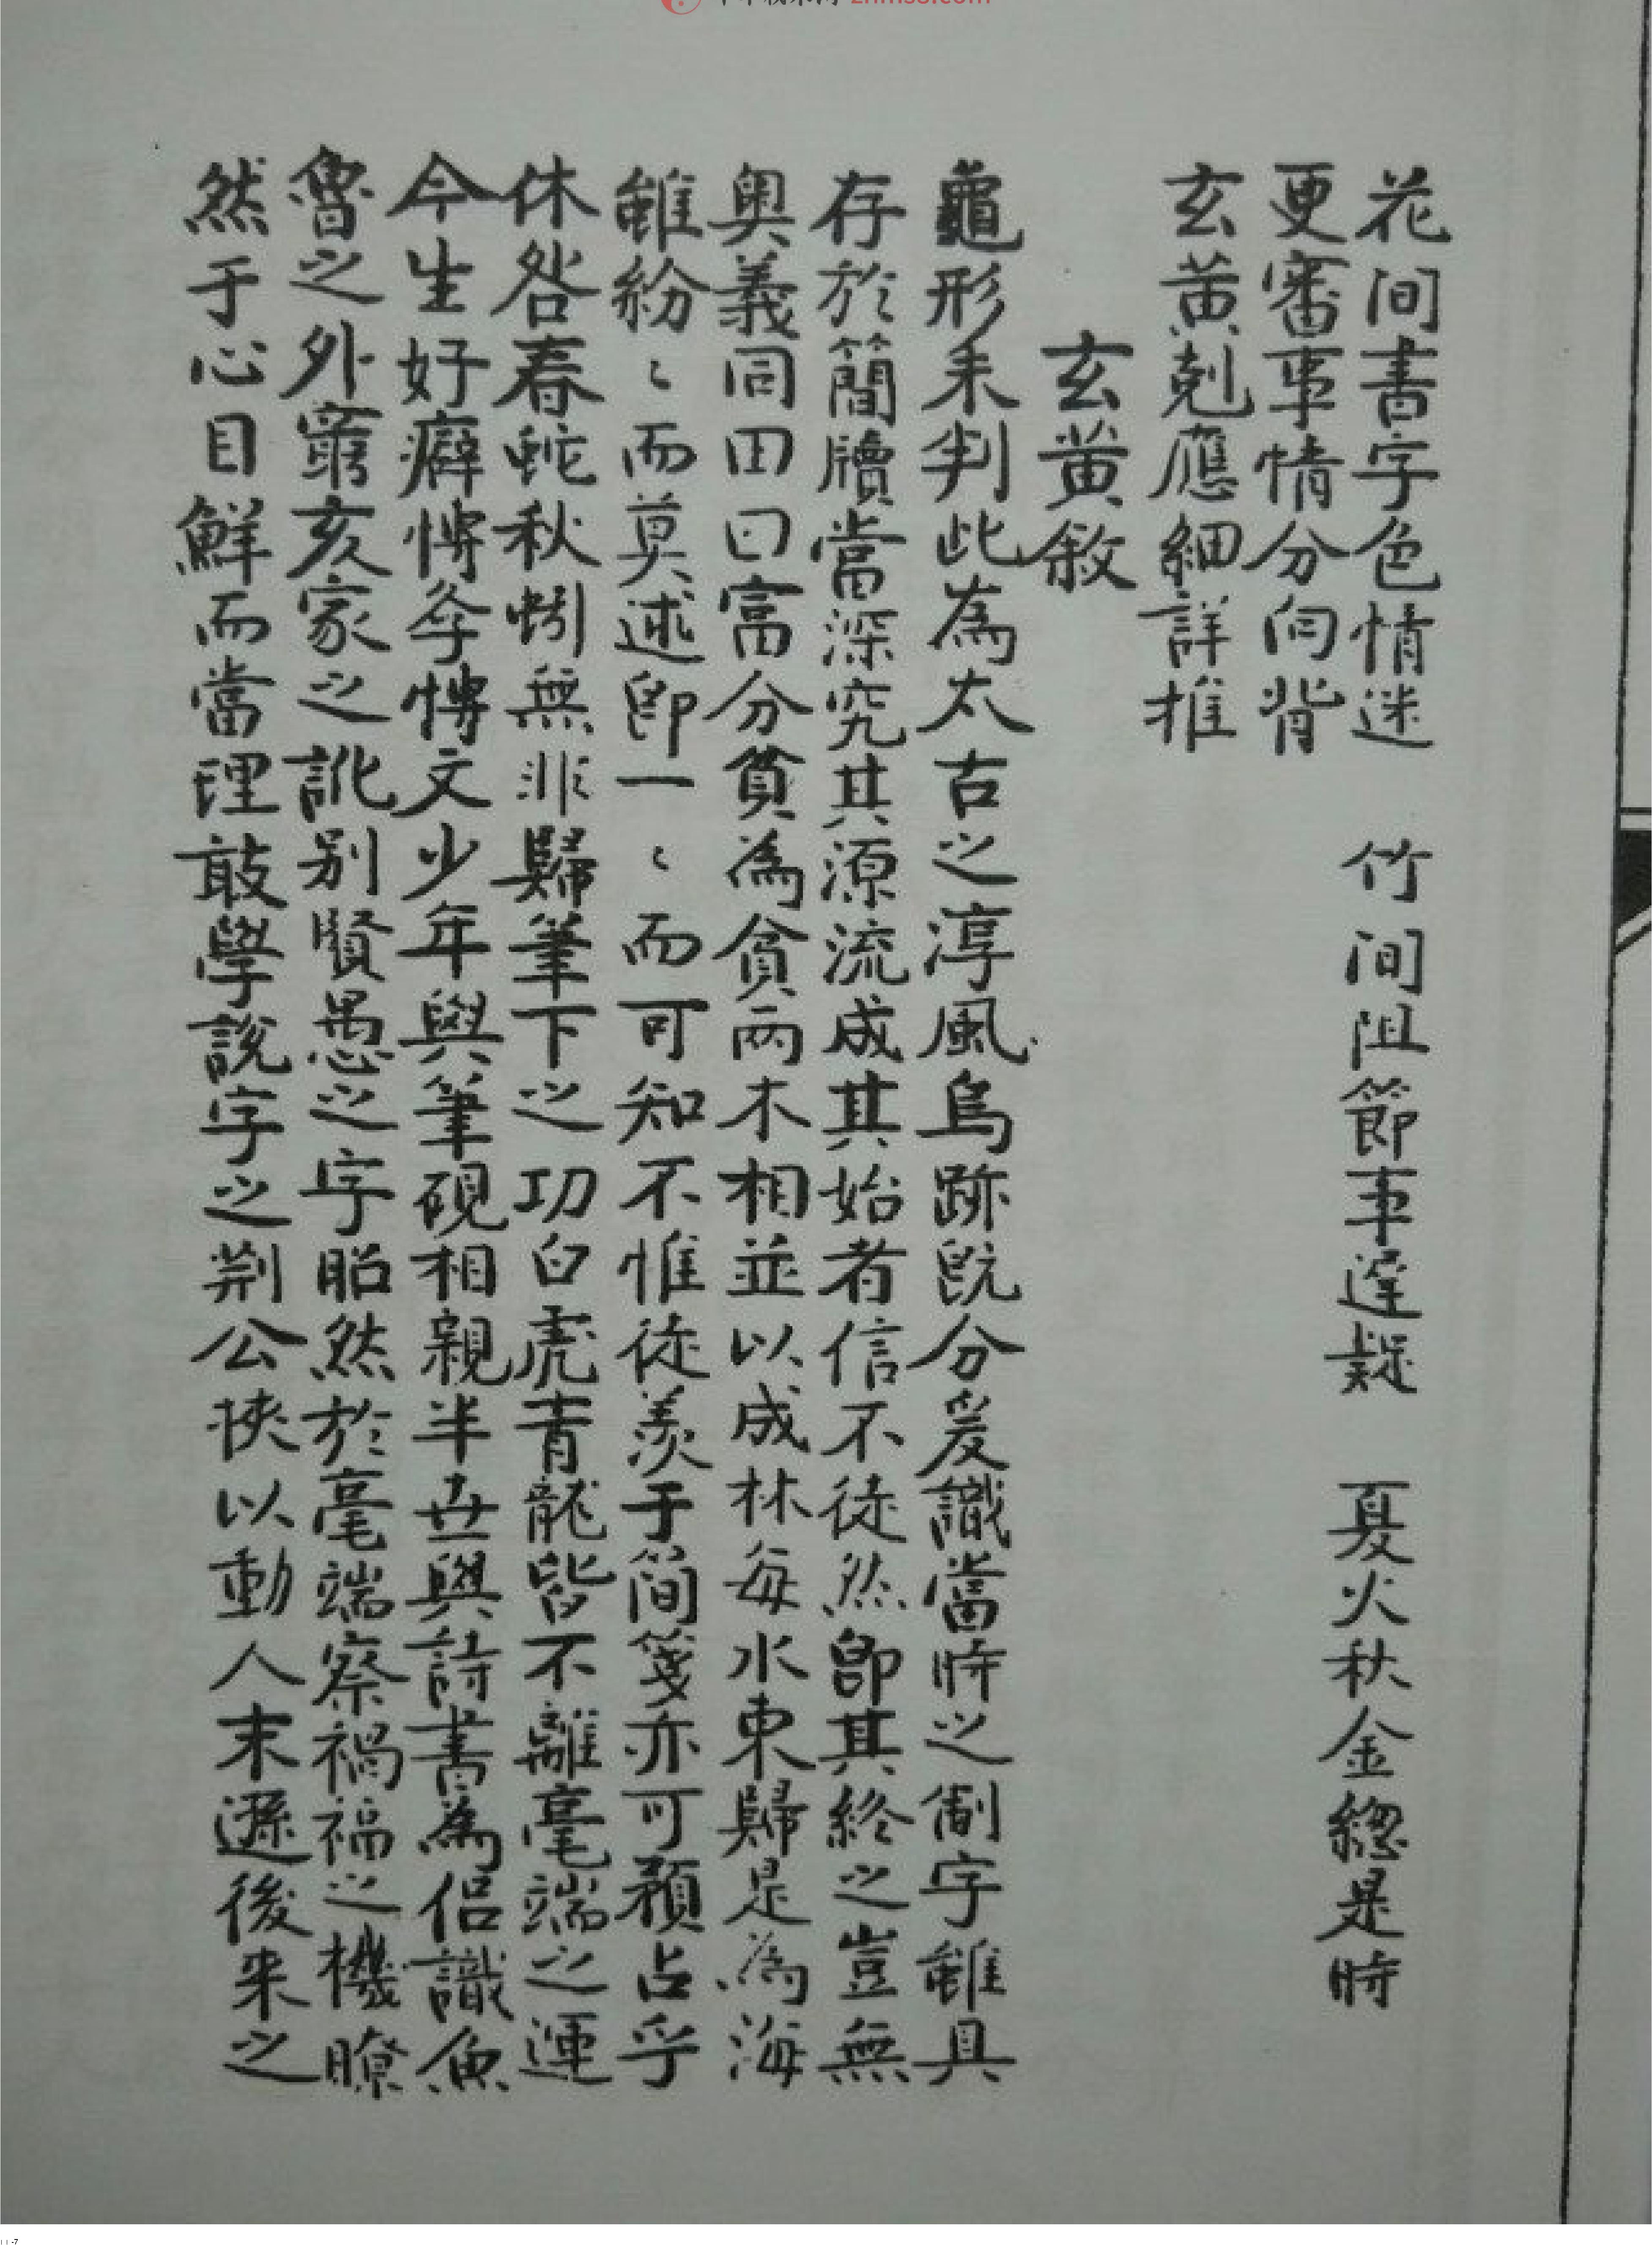 zhms8.com
花间書字色情迷 竹间阻節事遲疑 夏火秋金總是時
更審事情分向背
玄黄剋應細詳推
玄黄敘
龜形未判此為太古之淳風鳥跡既分爰識當時之制字雖具
存於簡牘當深究其源流成其始者信不徒然即其終之豈無
奥義同田曰富分貧為貧兩木相並以成林每水東歸是為海
雖紛〻而莫述即一〻而可知不惟徒羡于简笺亦可預占乎
休咎春蛇秋蚓無非歸筆下之功白虎青龍皆不離毫端之運
今生好癖博斈博文少年與筆硯相親半世與詩書為侣識魚
魯之外窮亥家之訛别賢愚之字昭然於毫端察禍福之機瞭
然于心目鮮而當理敢學說字之荆公挾以動人末遜後来之